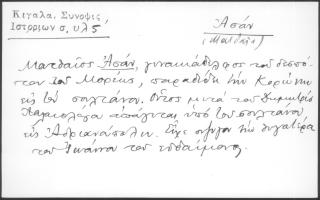 Κιγαλα, Συνοψις
Ἱστοριων σ, υλς
Ἀσάν
(Ματθαῖος)
Ματθαῖος Ἀσάν, γυναικάδελφος τοῦ δεσπό-
του τοῦ Μορέως, παραδίδει τὴν Κορώνην
εἰς τὸν σουλτάνον. Οὗτος μετὰ τοῦ Δημητρίου
Παλαιολόγου ἀπάγεται ὑπὸ τοῦ σουλτάνου
εἰς Ἀδριανούπολιν. Εἶχε σύζυγον τὴν θυγατέρα
τοῦ